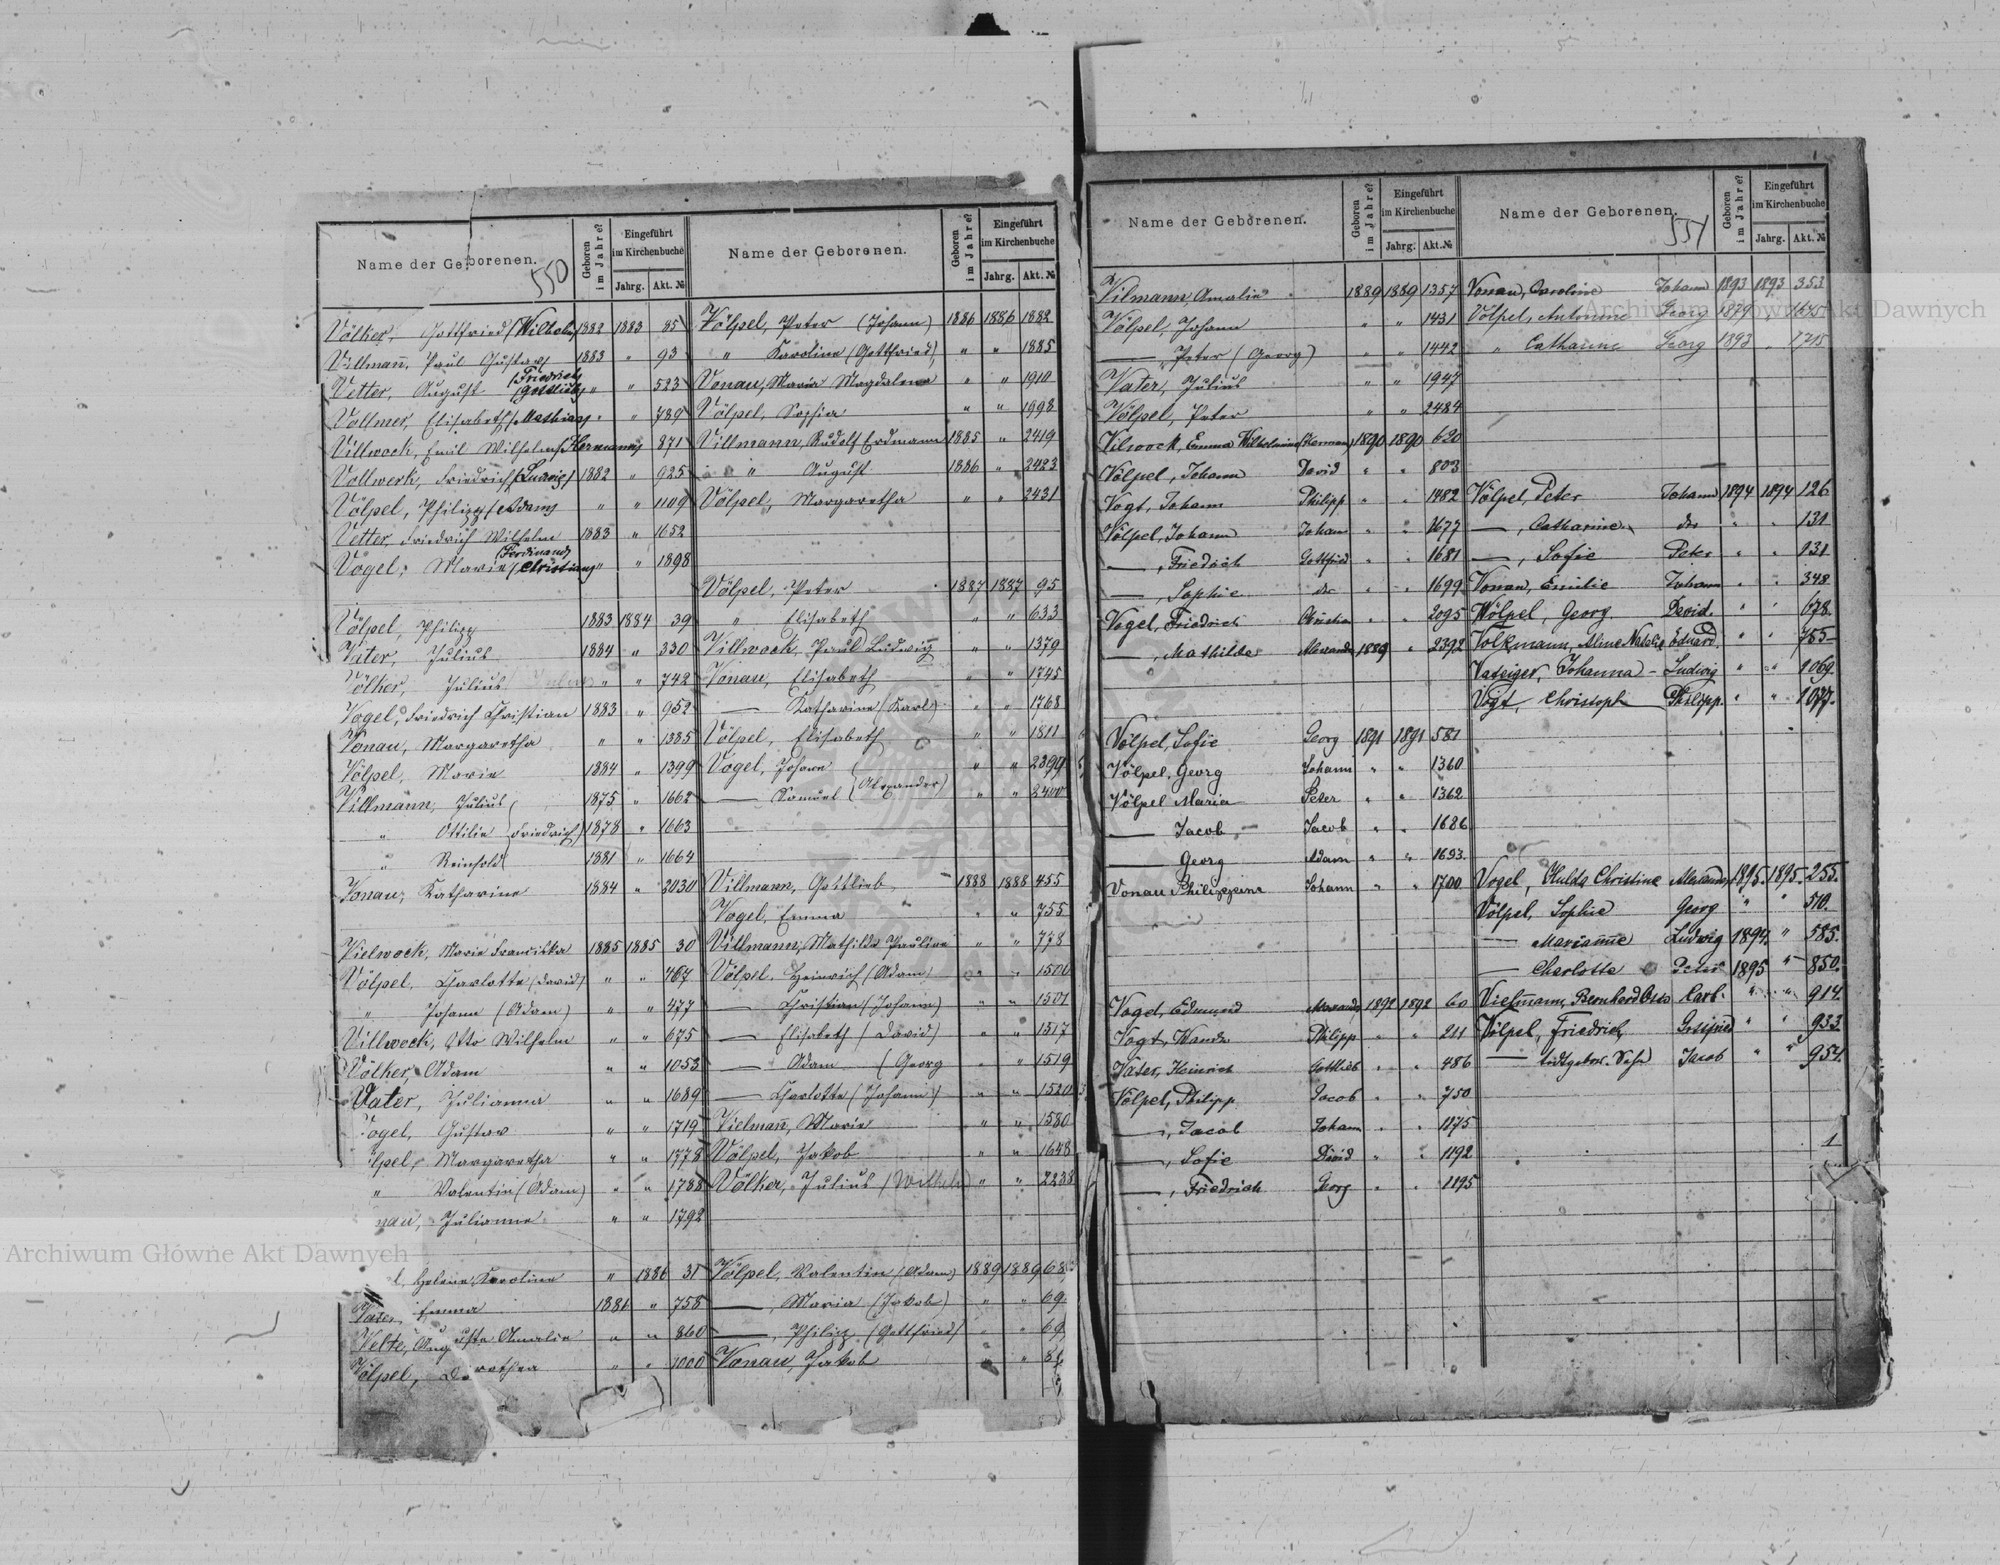 Name der Geborenen. 550
Geboren im Jahre?
Eingeführt im Kirchenbuche
Jahrg. Akt. №
Völker, Gottfried (Wilhelm) 1882 1883 85
Villmann, Paul Gustav 1883 " 93
Vetter, August (Friedrich Gottlieb) " " 523
Vollmer, Elisabeth (Mathias) " " 789
Villwock, Emil Wilhelm (Hermann) " 871
Vollwerk, Friedrich (Ludwig) 1882 " 925
Völpel, Philipp (Adam) " " 1109
Vetter, Friedrich Wilhelm 1883 " 1652
Vogel, Marie (Ferdinand Christian) " " 1898
Völpel, Philipp 1883 1884 39
Vater, Julius 1884 " 330
Völker, Julius " " 742
Vogel, Friedrich Christian 1883 " 952
Vonau, Margaretha " " 1335
Völpel, Marie 1884 " 1399
Villmann, Julius 1875 " 1662
" Ottilie (Friedrich) 1878 " 1663
" Reinhold 1881 " 1664
Vonau, Katharine 1884 " 2030
Vielwock, Marie Franciska 1885 1885 30
Völpel, Charlotte (David) " " 467
" Johann (Adam) " " 477
Villwock, Otto Wilhelm " " 675
Völker, Adam " " 1053
Vater, Julianna " " 1689
Vogel, Gustav " " 1719
lpel, Margaretha " " 1778
" Valentin (Adam) " " 1788
nau, Julianne " " 1792
l, Helene Karoline " 1886 31
Vater, Emma 1881 " 758
Velte, Auguste Amalie " " 860
Völpel, Dorothea " " 1000
Name der Geborenen.
Geboren im Jahre?
Eingeführt im Kirchenbuche
Jahrg. Akt. №
Völpel, Peter (Johann) 1886 1886 1882
" Karoline (Gottfried) " " 1885
Vonau, Maria Magdalena " " 1910
Völpel, Sophia " " 1998
Villmann, Rudolf Erdmann 1885 " 2419
" August 1886 " 2423
Völpel, Margaretha " " 2431
Völpel, Peter 1887 1887 95
" Elisabeth " " 633
Villwock, Paul Ludwig " " 1379
Vonau, Elisabeth " " 1745
— Katharine (Karl) " " 1768
Völpel, Elisabeth " " 1811
Vogel, Johann " " 2399
— Samuel (Alexander) " " 2400
Villmann, Gottlieb 1888 1888 455
Vogel, Emma " " 755
Villmann, Mathilde Pauline " " 778
Völpel, Heinrich (Adam) " " 1500
— Christian (Johann) " " 1501
— Elisabeth (David) " " 1517
— Adam (Georg " " 1519
— Charlotte (Johann) " " 1520
Vielmann, Marie " " 1580
Völpel, Jakob " " 1648
Völker, Julius (Wilhelm) " " 2238
Völpel, Valentin (Adam) 1889 1889 68
— Maria (Jakob) " " 69
—, Philipp (Gottfried) " " 69
Vonau Jakob " " 81
Name der Geborenen.
Geboren im Jahre?
Eingeführt im Kirchenbuche
Jahrg. Akt. №
Vilmann, Amalie 1889 1889 1357
Völpel, Johann " " 1431
—, Peter (Georg) " " 1442
Vater, Julius " " 1947
Völpel, Peter " " 2484
Vilwock, Emma Wilhelmine (Herman) 1890 1890 620
Völpel, Johann David " " 803
Vogt, Johann Philipp " " 1482
Völpel, Johann Johann " " 1677
—, Friedrich Gottfried " " 1681
—, Sophie do " " 1699
Vogel, Friedrich Christian " " 2095
—, Mathilde Alexander 1889 " 2392
Völpel, Sofie Georg 1891 1891 581
Völpel, Georg Johann " " 1360
Völpel Maria Peter " " 1362
— Jacob Jacob " " 1686
— Georg Adam " " 1693
Vonau Philippine Johann " " 1700
Vogel, Edmund Alexander 1892 1892 60
Vogt, Wanda Philipp " " 211
Vater, Heinrich Gottlieb " " 486
Völpel, Philipp Jacob " " 750
—, Jacob Johann " " 1175
—, Sofie David " " 1192
—, Friedrich Georg " " 1195
Name der Geborenen. 551
Geboren im Jahre?
Eingeführt im Kirchenbuche
Jahrg. Akt. №
Vonau, Caroline Johann 1893 1893 353
Völpel, Antonine Georg 1879 " 1675
" Catharine Georg 1893 " 1715
Völpel, Peter Johann 1894 1894 126
—, Catharine do " " 131
—, Sofie Peter " " 131
Vonau, Emilie Johann " " 348
Wölpel, Georg David " " 678
Volkmann, Alme Natalie Eduard " " 755
Vateiger, Johanna Ludwig " " 1069
Vogt, Christoph Philipp " " 1077
Vogel, Hulda Christine Alexander 1895 1895 255
Völpel, Sophie Georg " " 510
— Marianne Ludwig 1894 " 585
— Charlotte Peter 1895 " 850
Vielmann, Bernhard Otto Karl " " 914
Völpel, Friedrich Gottfried " " 933
— todtgebor. Sohn Jacob " " 954
1
Archiwum Główne Akt Dawnych
Archiwum Główne Akt Dawnych